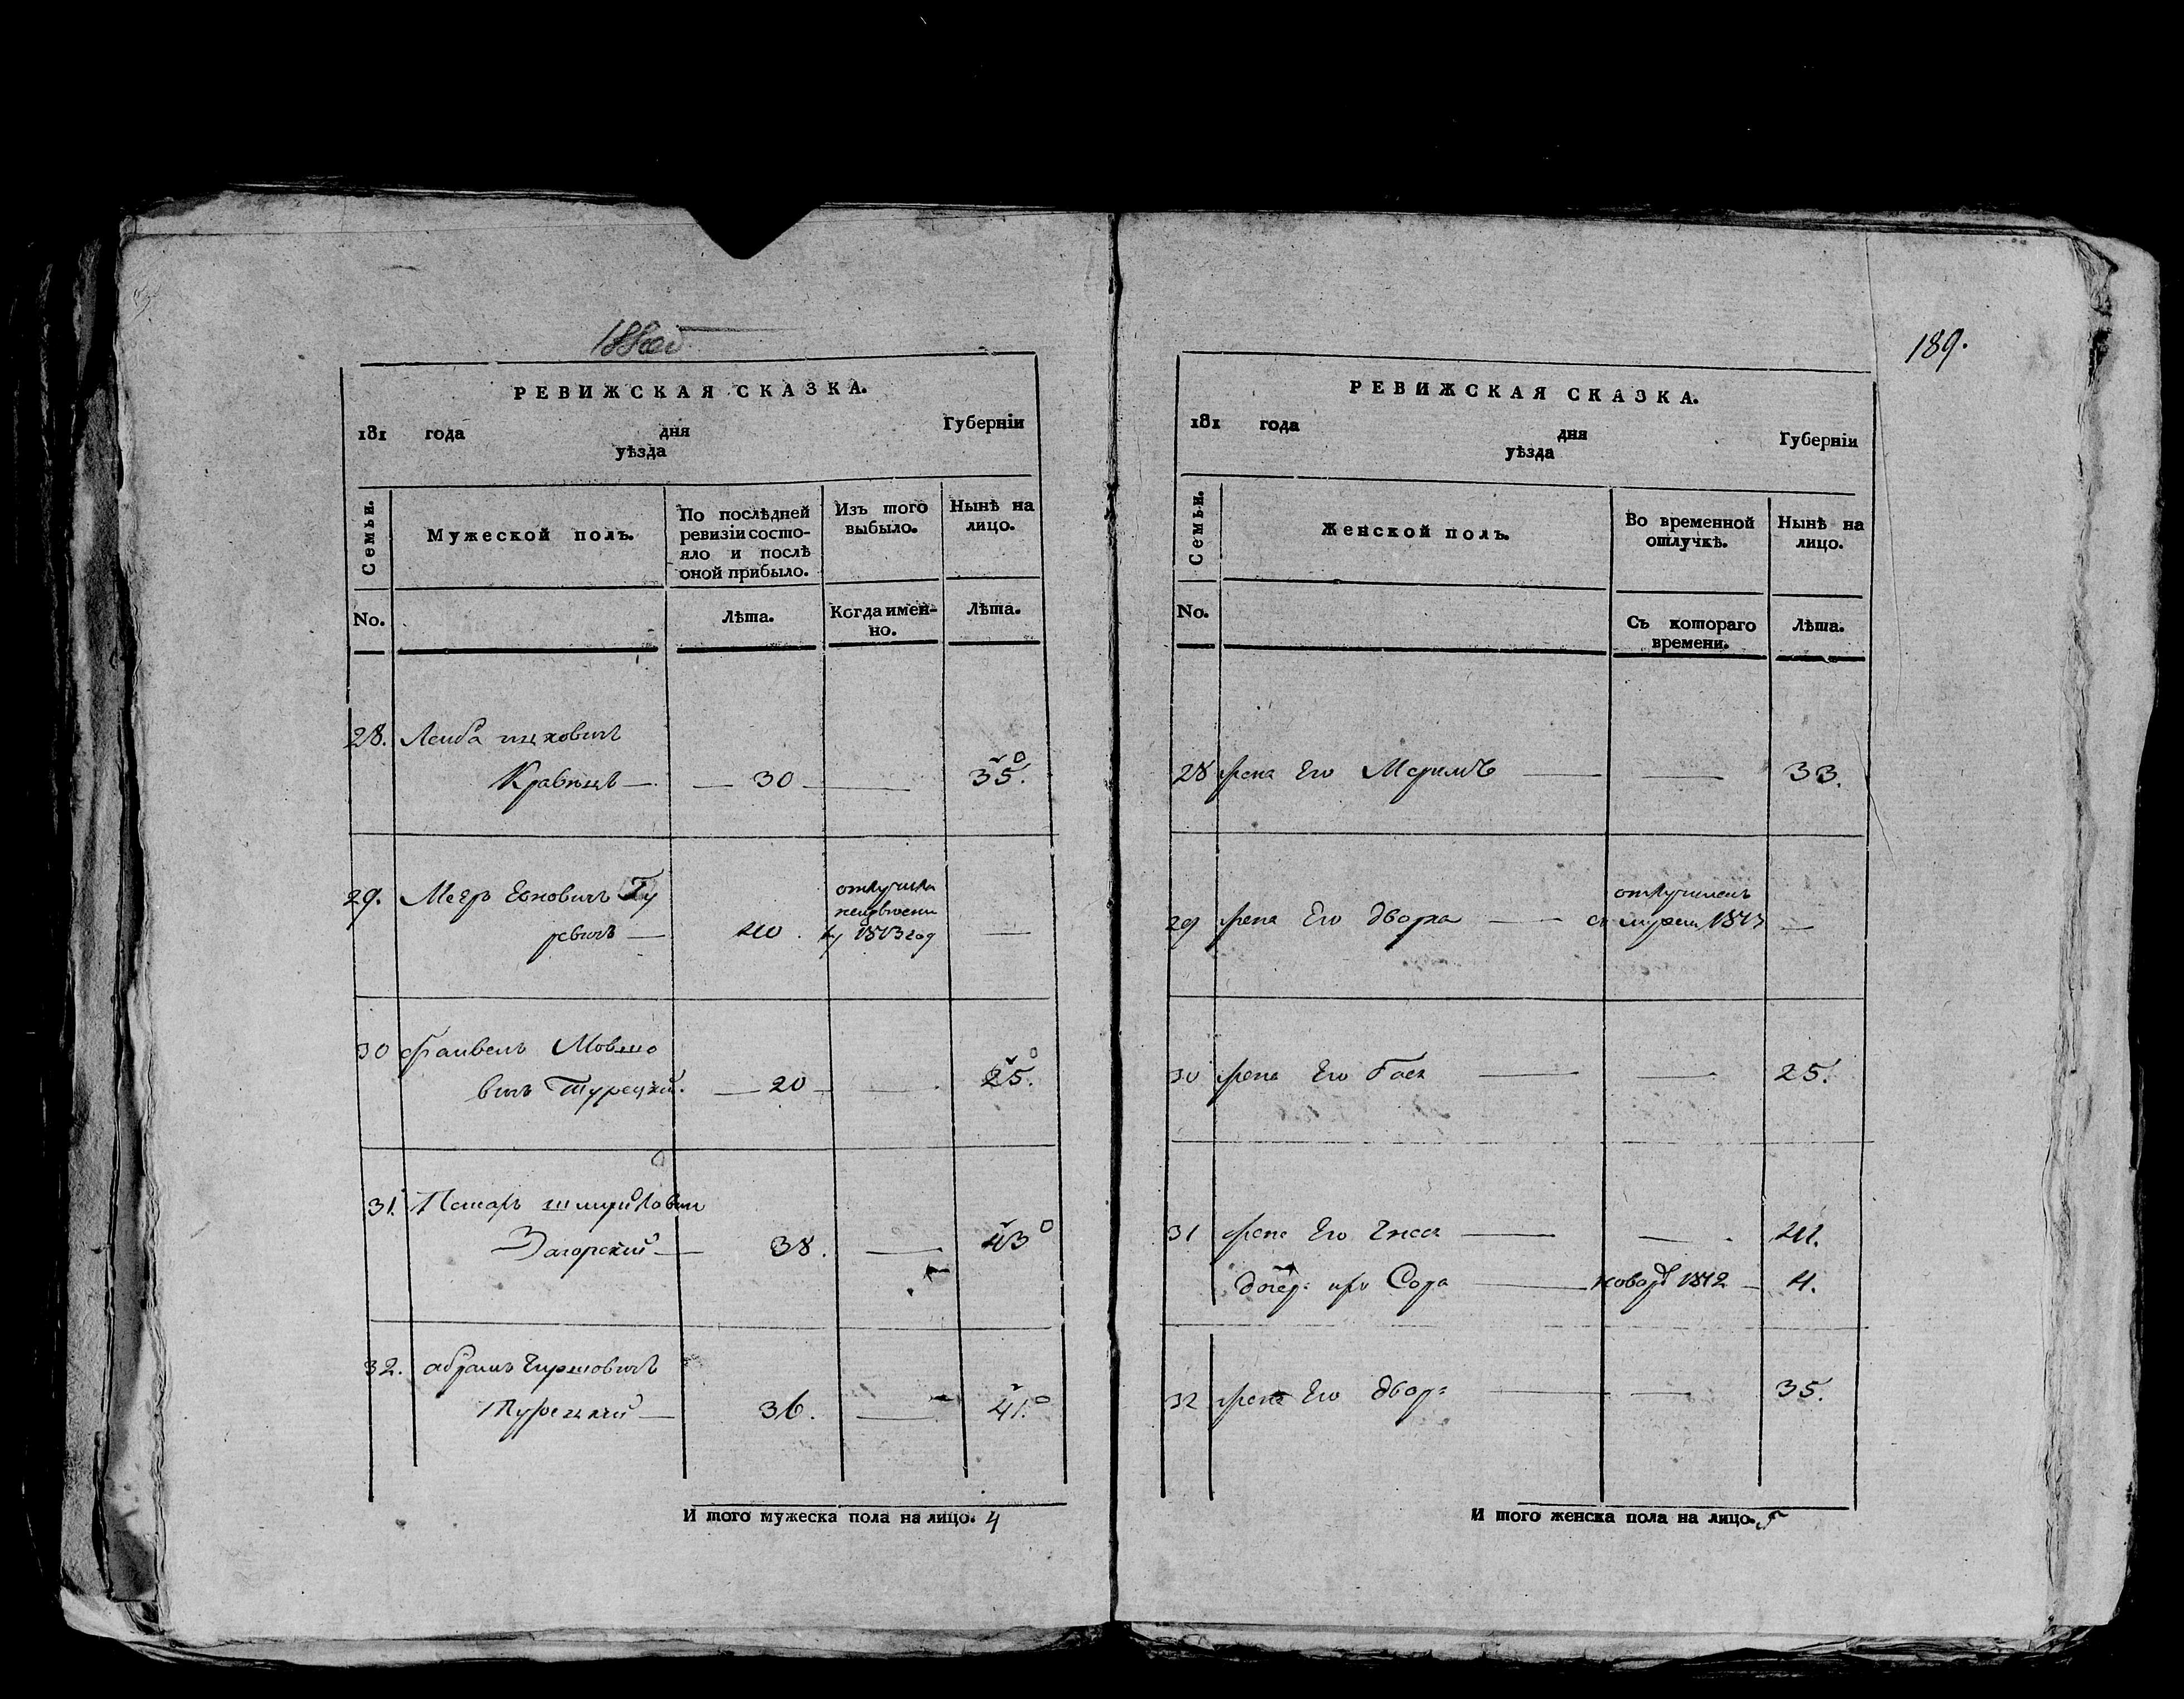 188об
РЕВИЖСКАЯ СКАЗКА.
181 года дня Губерніи
уѣзда
Семьи. Мужеской полъ. По послѣдней ревизіи состояло и послѣ оной прибыло. Изъ того выбыло. Нынѣ на лицо.
No. Лѣта. Когда именно. Лѣта.
28. Леиба ицковичъ
Кравецъ 30 35.
29. Меер Гу
ревичъ 40. 1813 год
30 Фаивель Мовшо
вичъ Турецкий. 20 25.
31.
Загорский 38. 43
32. абрамъ Гиршовичъ
Турецкий 36. 41.
И того мужеска пола на лицо. 4
189.
РЕВИЖСКАЯ СКАЗКА.
181 года дня Губерніи
уѣзда
Семьи. Женской полъ. Во временной отлучкѣ. Нынѣ на лицо.
No. Съ котораго времени. Лѣта.
28 жена Его 33.
29 жена Его двора 1813
30 жена Его Бася 25.
31 жена Его 41.
дочер Сора 1812 4.
32 жена Его двор 35.
И того женска пола на лицо. 5